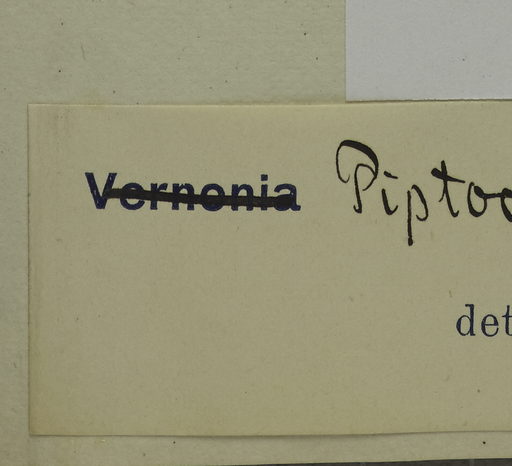 Vernonia Piptoc
det